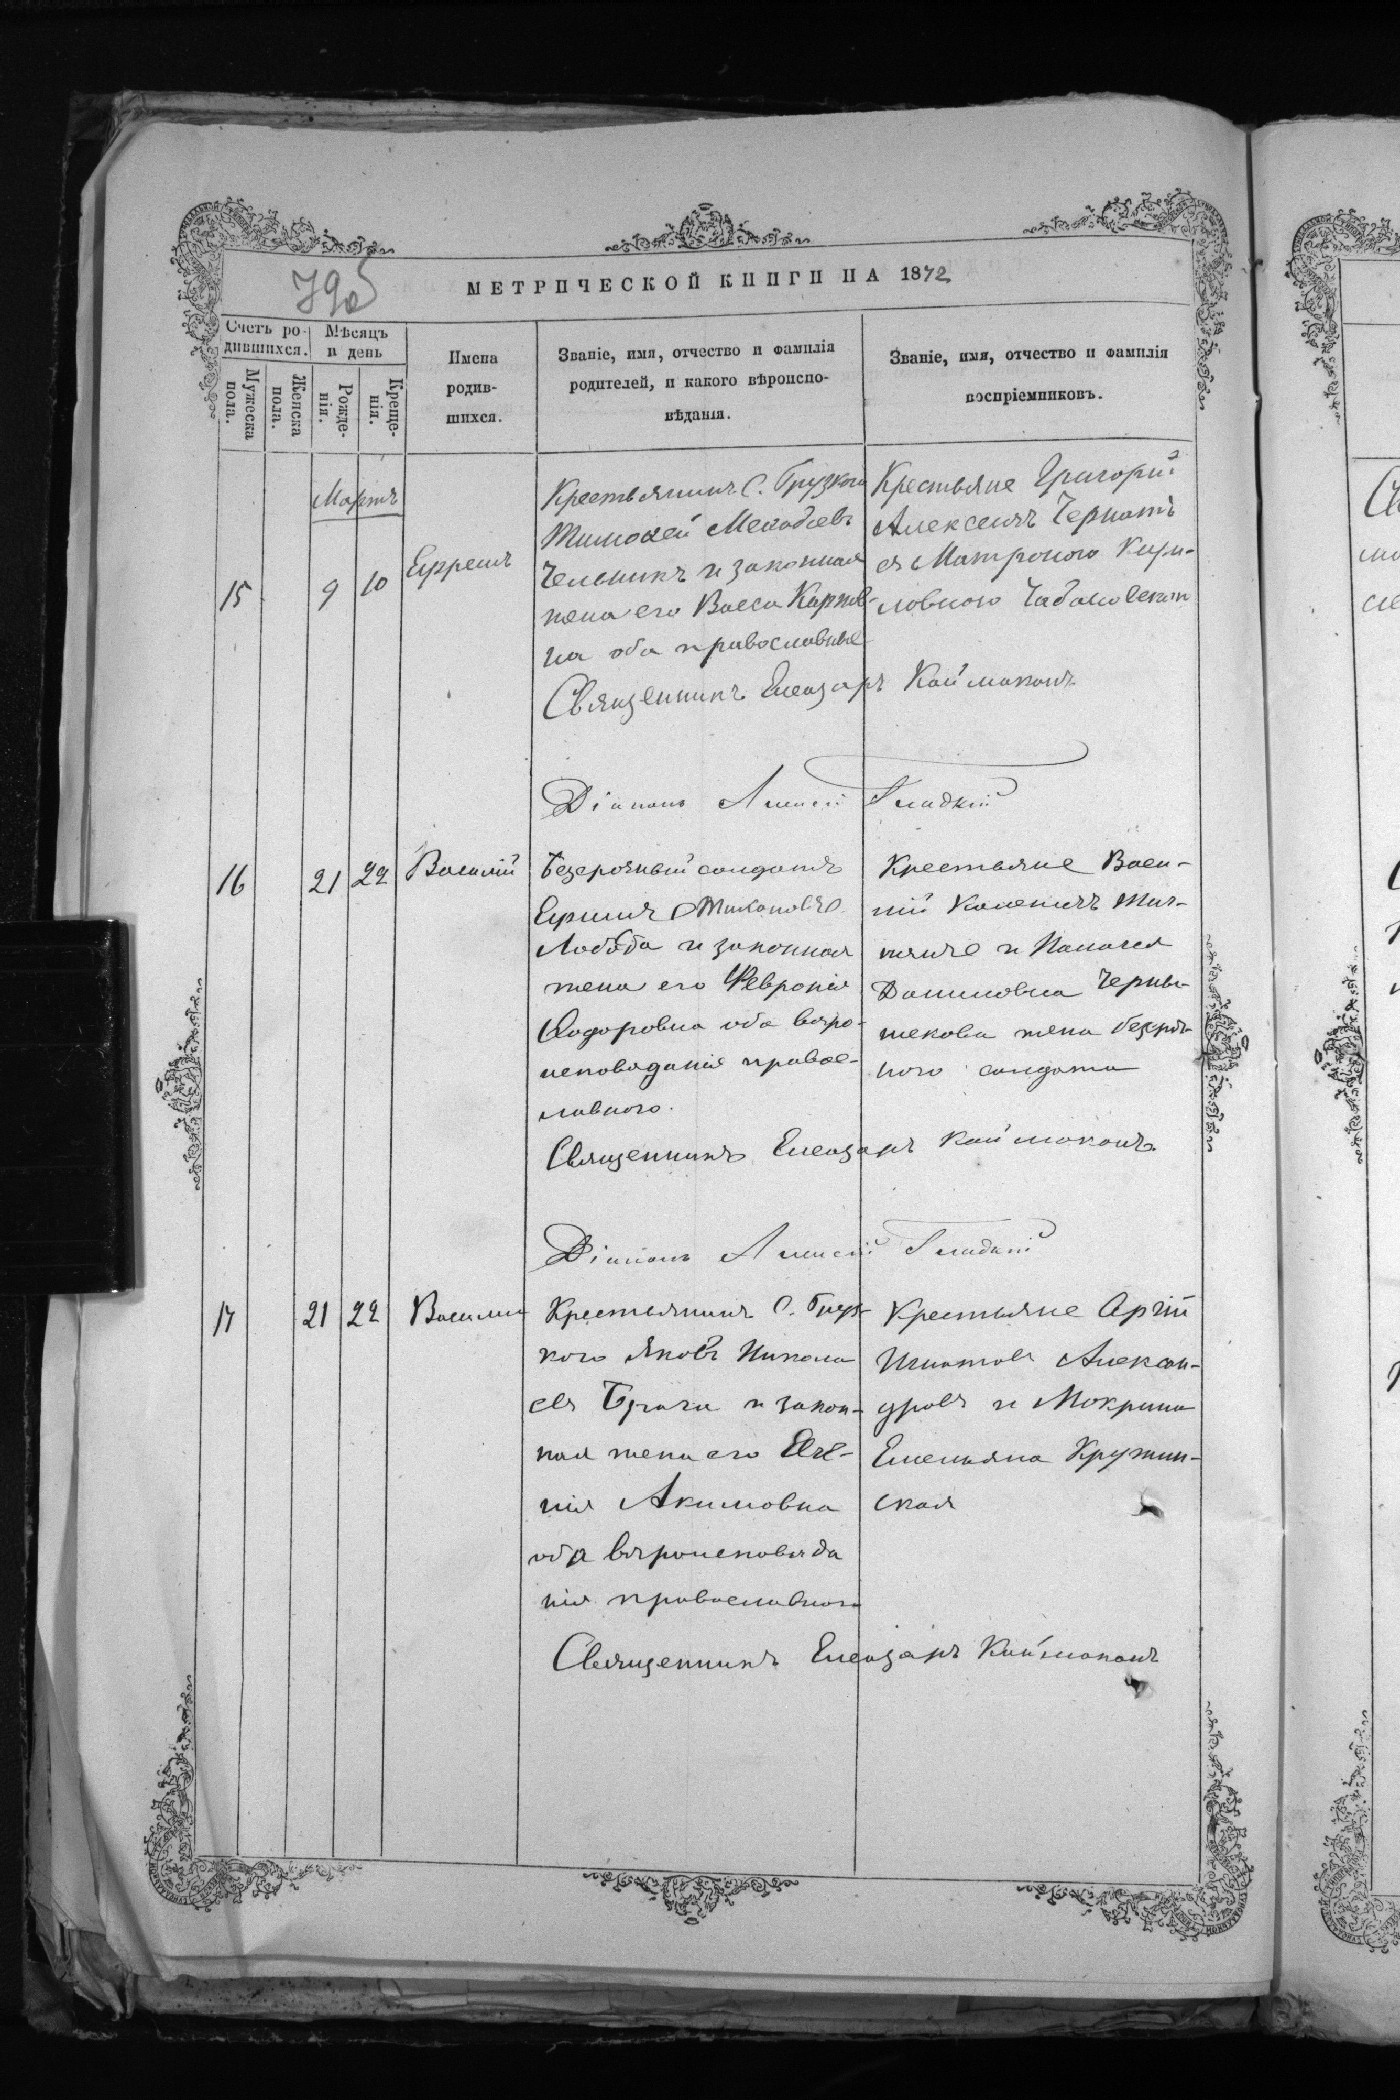 МЕТРИЧЕСКОЙ КНИГИ НА 1872
Счетъ родившихся.
Мѣсяцъ и день
Мужеска пола.
Женска пола.
Рожденія.
Крещенія.
Имена
родив-
шихся.
Званіе, имя, отчество и фамилія
родителей, и какого вѣроиспо-
вѣданія.
Званіе, имя, отчество и фамилія
воспріемниковъ.
Мартъ
15
9
10
Ефремъ
Крестьянинъ С. Грузкого
Тимоѳей
Чельникъ и законная
жена его Васса Карпов-
на оба православные
Крестьяне Григорій
Алексеевъ
съ Матроною Кири-
ловною
Священникъ Елеазаръ Каймаканъ
Діаконъ Алексій Гладкій
16
21
22
Василій
Безсрочный солдатъ
Лобода и законная
жена его Февронія
Ѳодоровна оба веро-
исповѣданія правос-
лавного.
Крестьяне Васи-
лій
Даниловна Черны-
шекова жена безсроч-
ного солдата
Священникъ Елеазаръ Каймаканъ
Діаконъ Алексій Гладкій
17
21
22
Василій
Крестьянинъ С. Груз-
кого Яковъ Никола
евъ и закон-
ная жена его Евге-
нія Акимовна
оба вѣроисповѣда
нія православного
Крестьяне
Игнатовъ Алексан-
дровъ и Мокрина
Емельяна Кружин-
ская
Священникъ Елеазаръ Каймаканъ